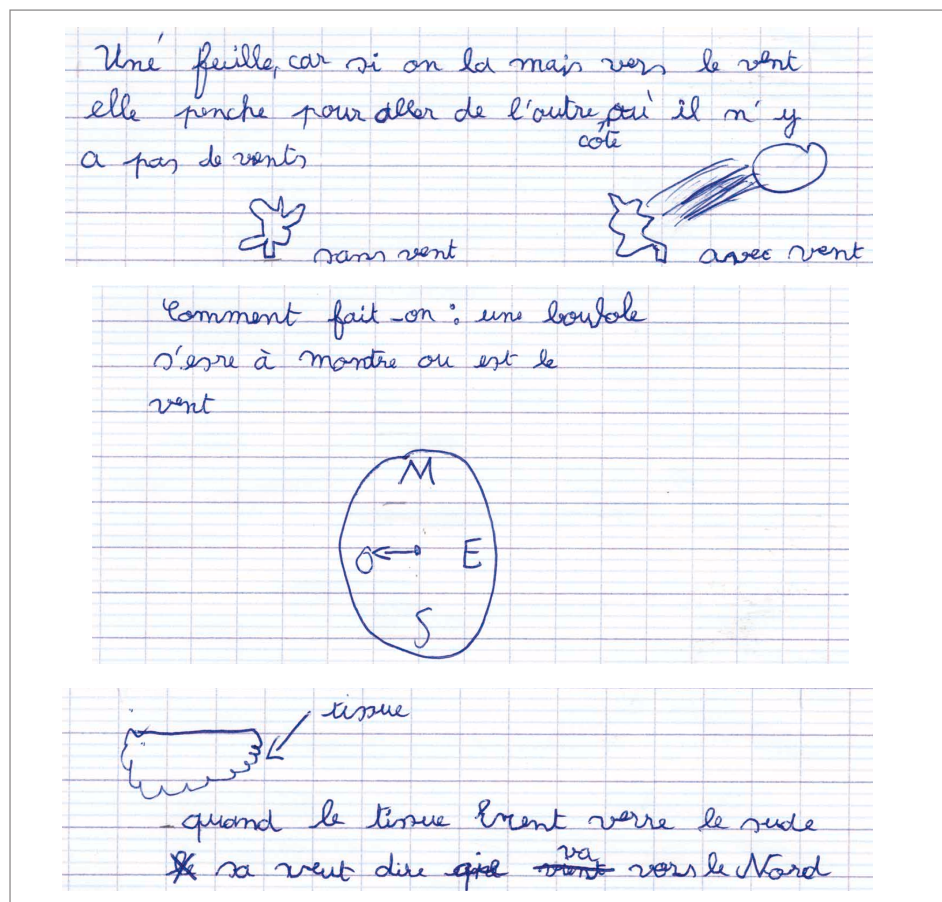 Une feuille, car si on la mais vers le vent
elle penche pour aller de l'autre côté, où il n'y
a pas de vents
sans vent
avec vent
Comment fait-on : une boussole
à montre ou est le
vent
N
O E
S
tissue
quand le tissue vent verre le sude
sa veut dire va vers le Nord